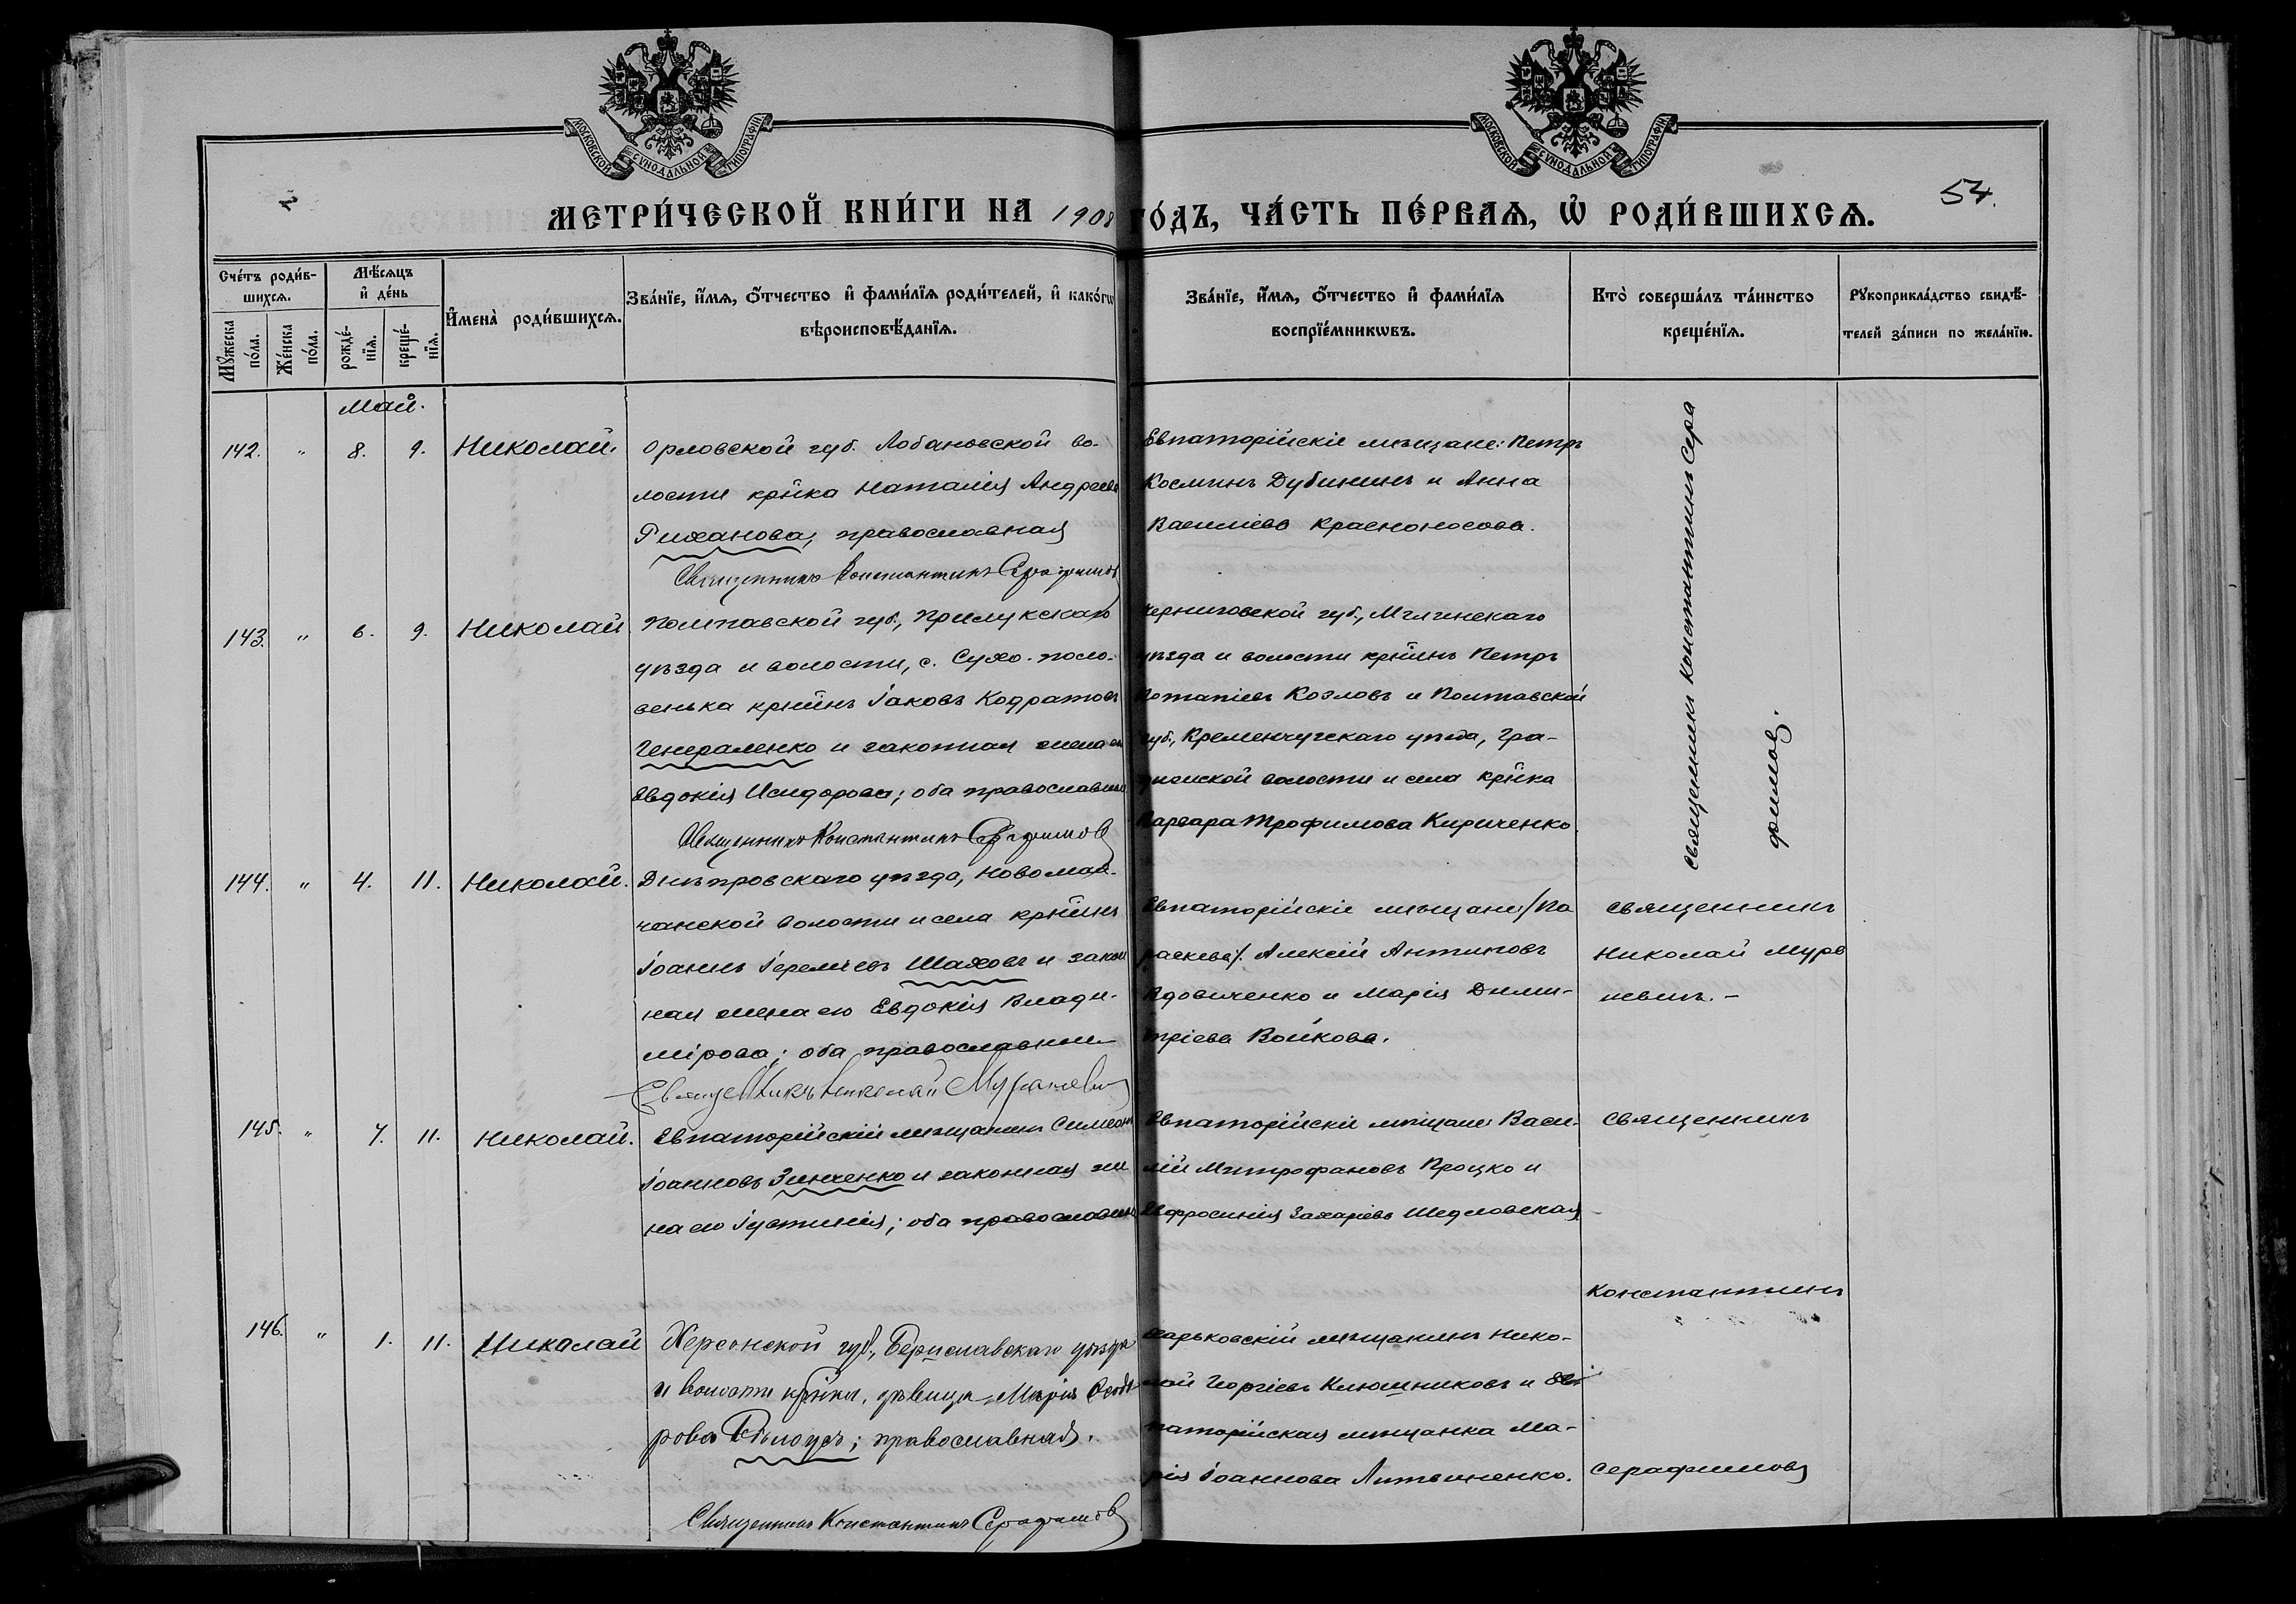 МОСКОВСКОЙ СУНОДАЛЬНОЙ ТИПОГРАФІИ
МОСКОВСКОЙ СУНОДАЛЬНОЙ ТИПОГРАФІИ
54.
МЕТРИ́ЧЕСКОЙ КНИ́ГИ НА 1908 ГО́ДЪ, ЧА́СТЬ ПЕ́РВАѦ, Ѡ҆ РОДИ́ВШИХСѦ.
Сче́тъ роди́в-
шихсѧ.
Мꙋ́жеска
по́ла.
Же́нска
по́ла.
Мѣ́сѧцъ
и҆ де́нь
рожде́-
нїѧ.
креще́-
нїѧ.
И҆мена̀ роди́вшихсѧ.
Зва́нїе, и҆́мѧ, ѻ҆́тчество и҆ фами́лїѧ роди́телей, и҆ како́гѡ
вѣроисповѣ́данїѧ.
Зва́нїе, и҆́мѧ, ѻ҆́тчество и҆ фами́лїѧ
воспрїе́мникѡвъ.
Кто̀ соверша́лъ та́инство
креще́нїѧ.
Рꙋкоприкла́дство свидѣ́-
телей за́писи по жела́нїю.
Май.
142. " 8. 9. Николай.
Орловской губ. Лобановской во-
лости кр̃нка Наталія Андреева
Риханова, православная
Священникъ Константинъ Серафимовъ
Евпаторійскіе мѣщане: Петръ
Косминъ Дубининъ и Анна
Василіева Красноносова.
Священникъ Константинъ Сера
фимовъ.
143. " 6. 9. Николай
Полтавской губ., Прилукскаго
уѣзда и волости, с. Сухо-поло-
венька кр̃нинъ Іаковъ Кодратовъ
Генераленко и законная жена его
Евдокія Исидорова; оба православные
Священникъ Константинъ Серафимовъ
Черниговской губ., Мглинскаго
уѣзда и волости кр̃нинъ Петръ
Потапіевъ Козловъ и Полтавской
губ., Кременчугскаго уѣзда, Гра-
дижской волости и села кр̃нка
Варвара Трофимова Кириченко.
144. " 4. 11. Николай.
Днѣпровскаго уѣзда, Новомая-
чанской волости и села кр̃нинъ
Іоаннъ Іереміевъ Шаховъ и закон
ная жена его Евдокія Влади-
мірова; оба православные
Священникъ Николай Мураневичъ
Евпаторійскіе мѣщане /Па
раскева/. Алексій Антиповъ
Вдовиченко и Марія Дими-
тріева Войкова.
Священникъ
Николай Мура
невичъ. -
145. " 7. 11. Николай.
Евпаторійскій мѣщанинъ Симеонъ
Іоанновъ Зинченко и законная же
на его Іустинія; оба православные
Евпаторійскіе мѣщане: Васи-
лій Митрофановъ Процко и
Евфросинія Захаріева Шедловская
Священникъ
Константинъ
Серафимовъ
146. " 1. 11. Николай
Херсонской губ., Бериславскаго уѣзда
и волости кр̃нка, дѣвица Марія Ѳеодо
рова Бѣлоусъ; православная.
Священникъ Константинъ Серафимовъ
Харьковскій мѣщанинъ Нико-
лай Георгіевъ Ключниковъ и Ев-
паторійская мѣщанка Ма-
рія Іоаннова Литвиненко.